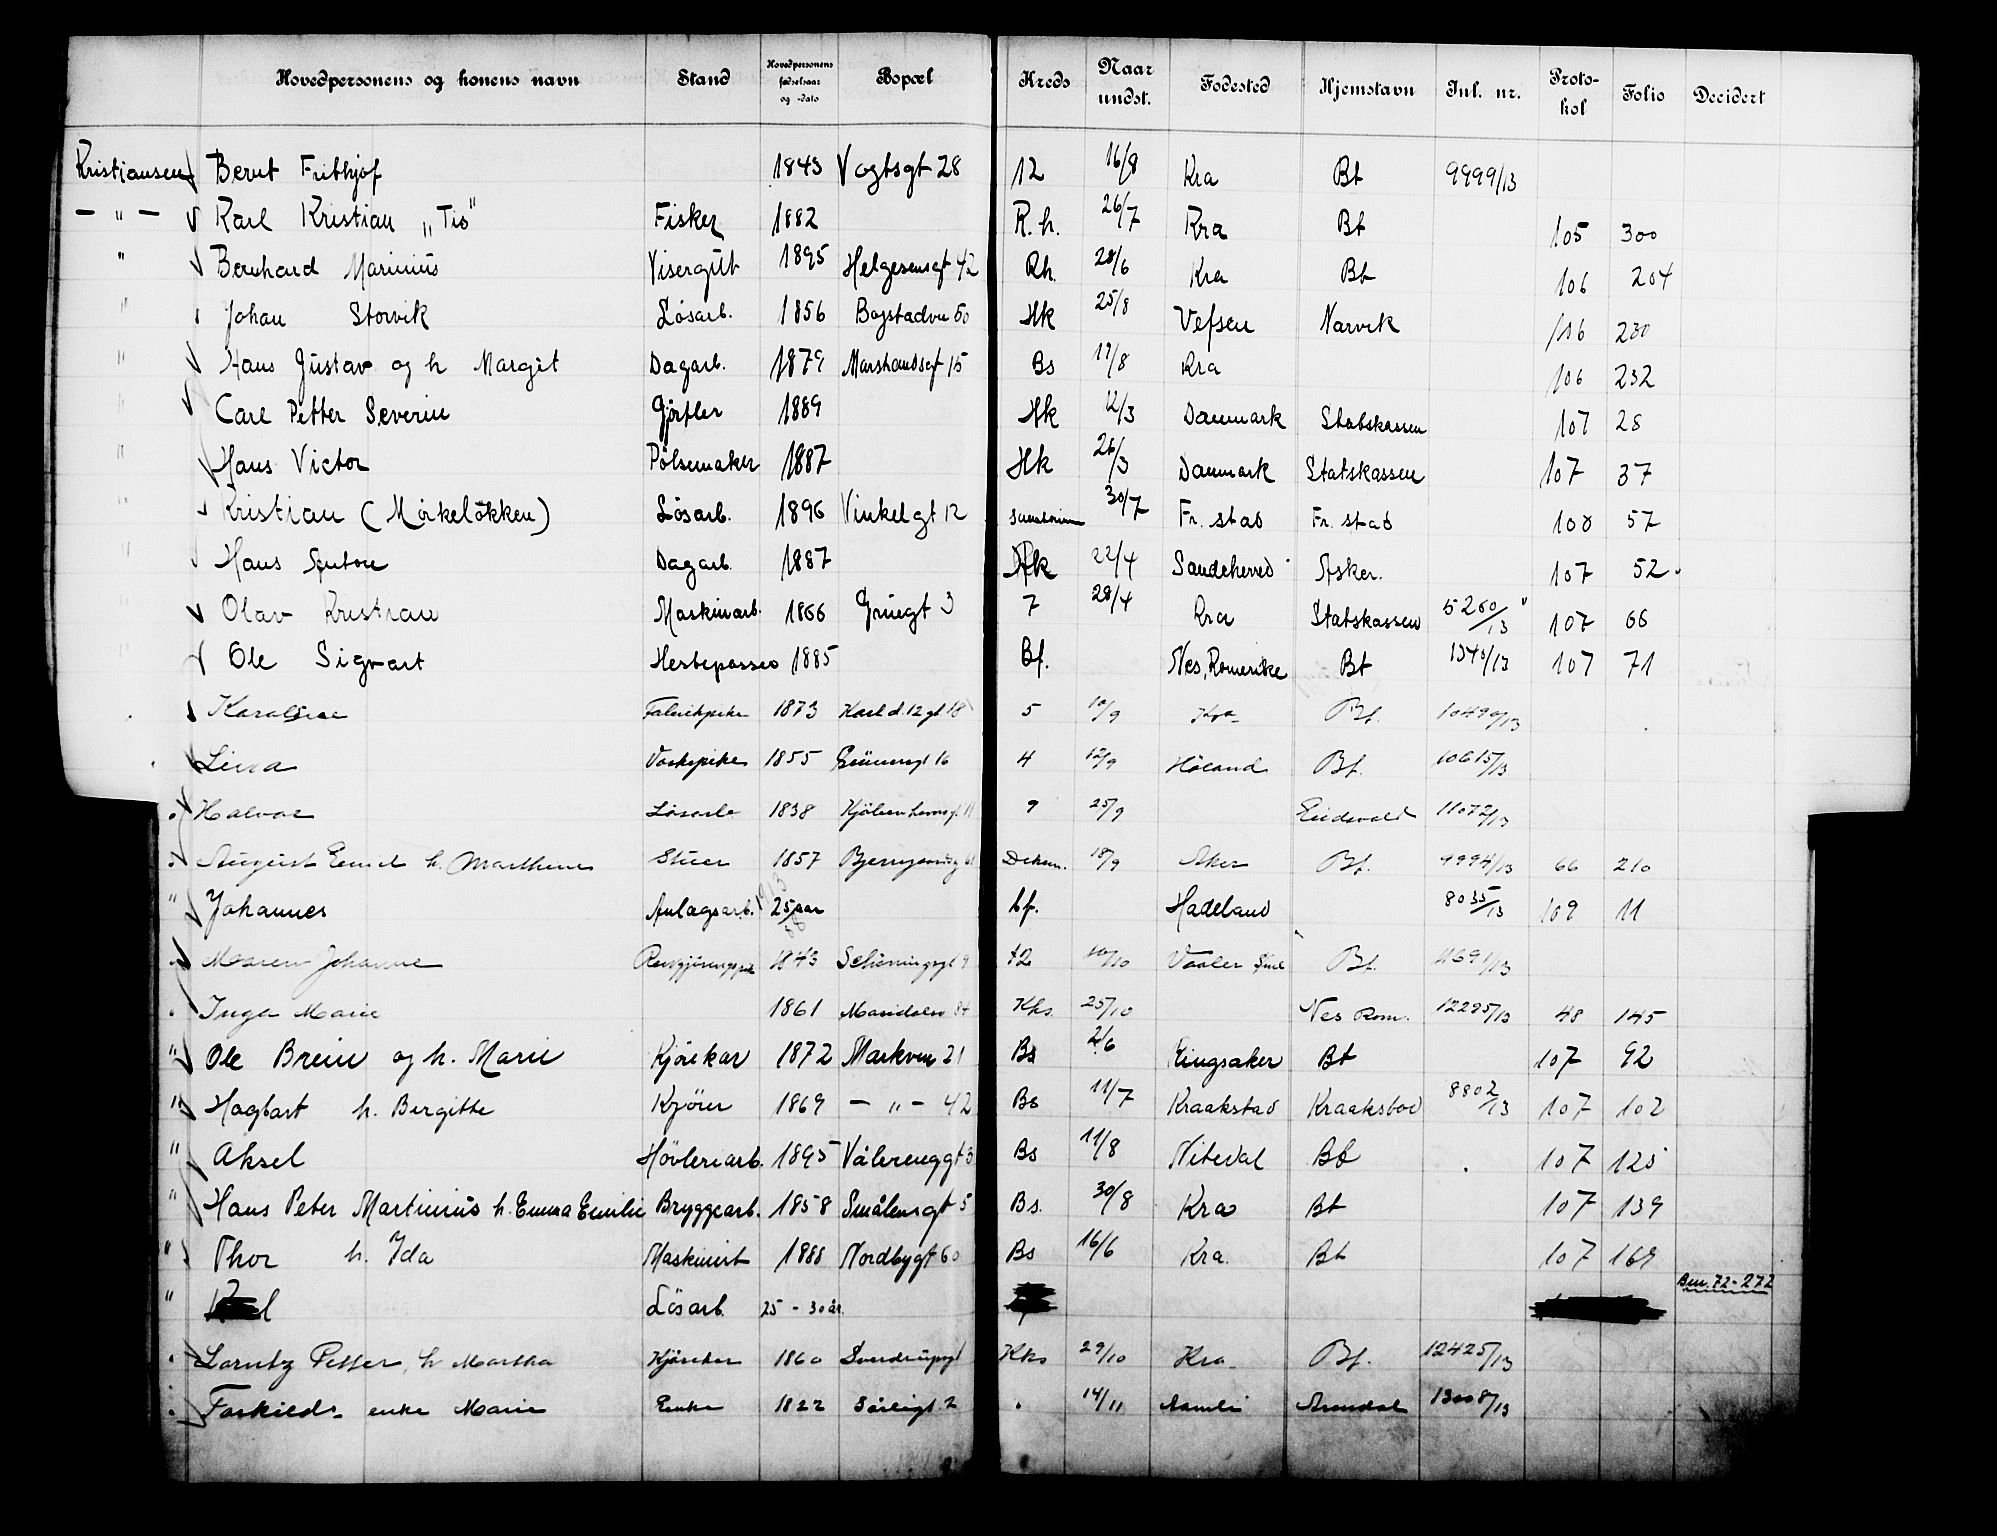 Hovedpersonens og konens navn Stand Hovedpersonens fødselsaar og -dato Bopæl Kreds Naar undst. Fødested Hjemstavn Jnl. nr. Protokol Folio Decidert
Kristiansen Bernt Frithjof 1843 Vogtsgt 28 12 16/8 Kra Bt 9999/13
— " — Karl Kristian „Tis" Fisker 1882 R.h. 26/7 Kra Bt 105 300
" Bernhard Marinius Visergut 1895 Helgesensgt 42 Rh. 28/6 Kra Bt 106 204
" Johan Storvik Løsarb. 1856 Bogstadvn 50 Hk 25/8 Vefsen Narvik 106 230
" Hans Gustav og h Margit Dagarb. 1879 Markandsgt 15 Bs 11/8 Kra 106 232
" Carl Petter Severin Gjørtler 1889 Hk 12/3 Danmark Statskassen 107 28
" Hans Victor Pølsemaker 1887 Hk 26/3 Danmark Statskassen 107 37
" Kristian (Mörkelökken) Løsarb. 1896 Vinkelgt 12 30/7 Fr. stad Fr. stad 108 57
" Hans Løsarb. 1887 Hk 22/4 Sandeherred Asker. 107 52
" Olav Kristian Maskinarb. 1866 Gruegt 3 7 28/4 Kra Statskassen 5260/13 107 66
Ole Sigvart Hestepasser 1885 Bf. Nes, Romerike Bt 1340/13 107 71
Karoline Fabrikpike 1873 Karl d. 12 gt 18 5 10/9 Kra Bf. 10490/13
Lina Vaskepike 1855 Brünnsgt 16 4 12/9 Høland Bf. 10615/13
" Halvor Løsarb 1838 9 25/9 Eidsvold 11072/13
" August Emil h. Marthine Stuer 1857 18/9 Aker Bf. 9994/13 66 210
" Johannes Anlægsarb. 25 aar 1913 88 Lf. Hadeland 8035/13 109 11
" Maren Johanne 1843 Schøningsgt 9 12 10/10 Vaaler Bf. 11691/13
" Inga Marie 1861 Maridalsv 84 Kks. 25/10 Nes Rom. 12295/13 48 145
" Ole Brein og h. Marie Kjörekar 1872 Markvn 21 Bs 2/6 Ringsaker Bt 107 92
" Hagbart h. Bergitte Kjörer 1869 — " — 42 Bs 11/7 Kraakstad Kraakstad 8802/13 107 102
" Aksel Hövleriarb. 1895 Vålerenggt 3 Bs 11/8 Nitedal Bt 107 125
" Hans Peter Martinius h. Emma Emilie Bryggearb. 1858 Smålensgt 5 Bs. 30/8 Kra Bt 107 139
" Thor h. Ida Maskinist 1888 Nordbygt 60 Bs 16/6 Kra. Bt 107 169
" Løsarb. 25 - 30 år. Bm. 72 - 272
" Lorntz Petter, h Martha Kjørekar 1860 Sverdrupsgt Kks 29/10 Kra. Bf. 12425/13
" Torkilds enke Marie Enke 1822 2 " 14/11 Aamli Arendal 13008/13